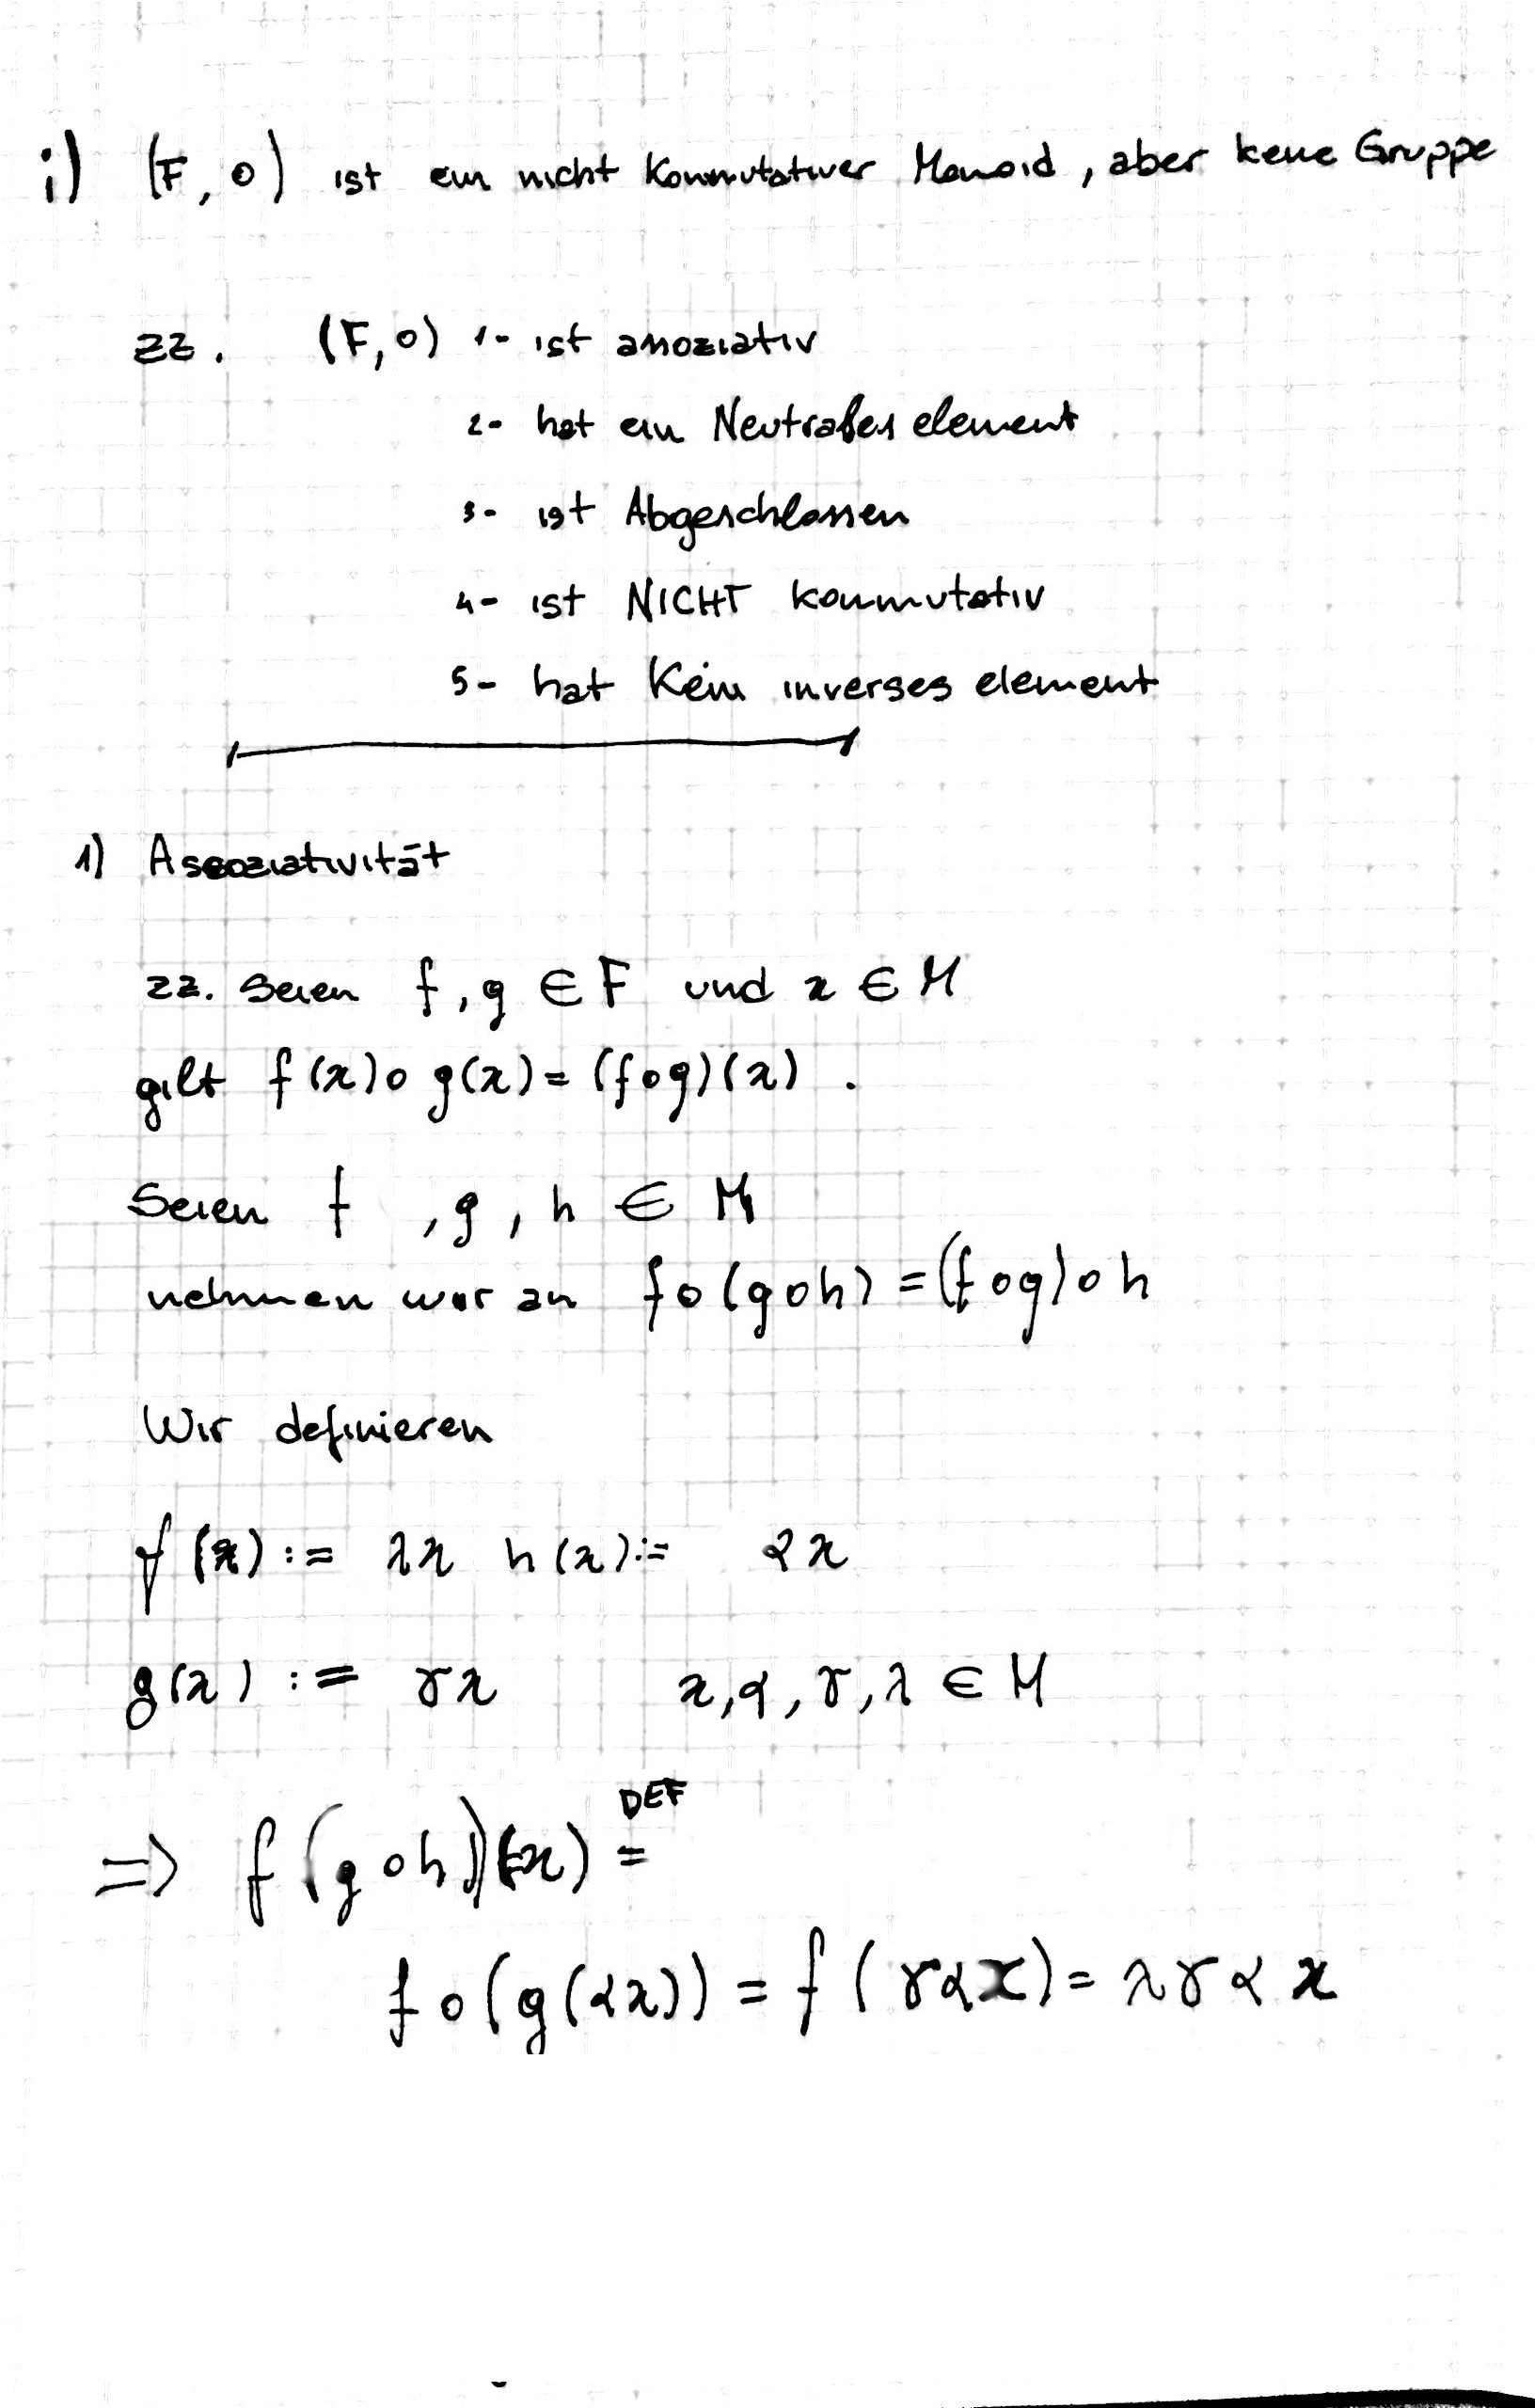 i) (F, o) ist ein nicht kommutativer Monoid, aber keine Gruppe
zz. (F, o) 1- ist assoziativ
2- hat ein Neutrales element
3- ist Abgeschlossen
4- ist NICHT kommutativ
5- hat Kein inverses element
1) Assoziativität
zz. Seien f, g ∈ F und x ∈ M
gilt f(x) o g(x) = (f o g)(x) .
Seien f , g , h ∈ M
nehmen wir an f o (g o h) = (f o g) o h
Wir definieren
f(x) := λx h(x) := αx
g(x) := γx x, α, γ, λ ∈ M
DEF
=> f(g o h)(x) =
f o (g(αx)) = f(γαx) = λγαx